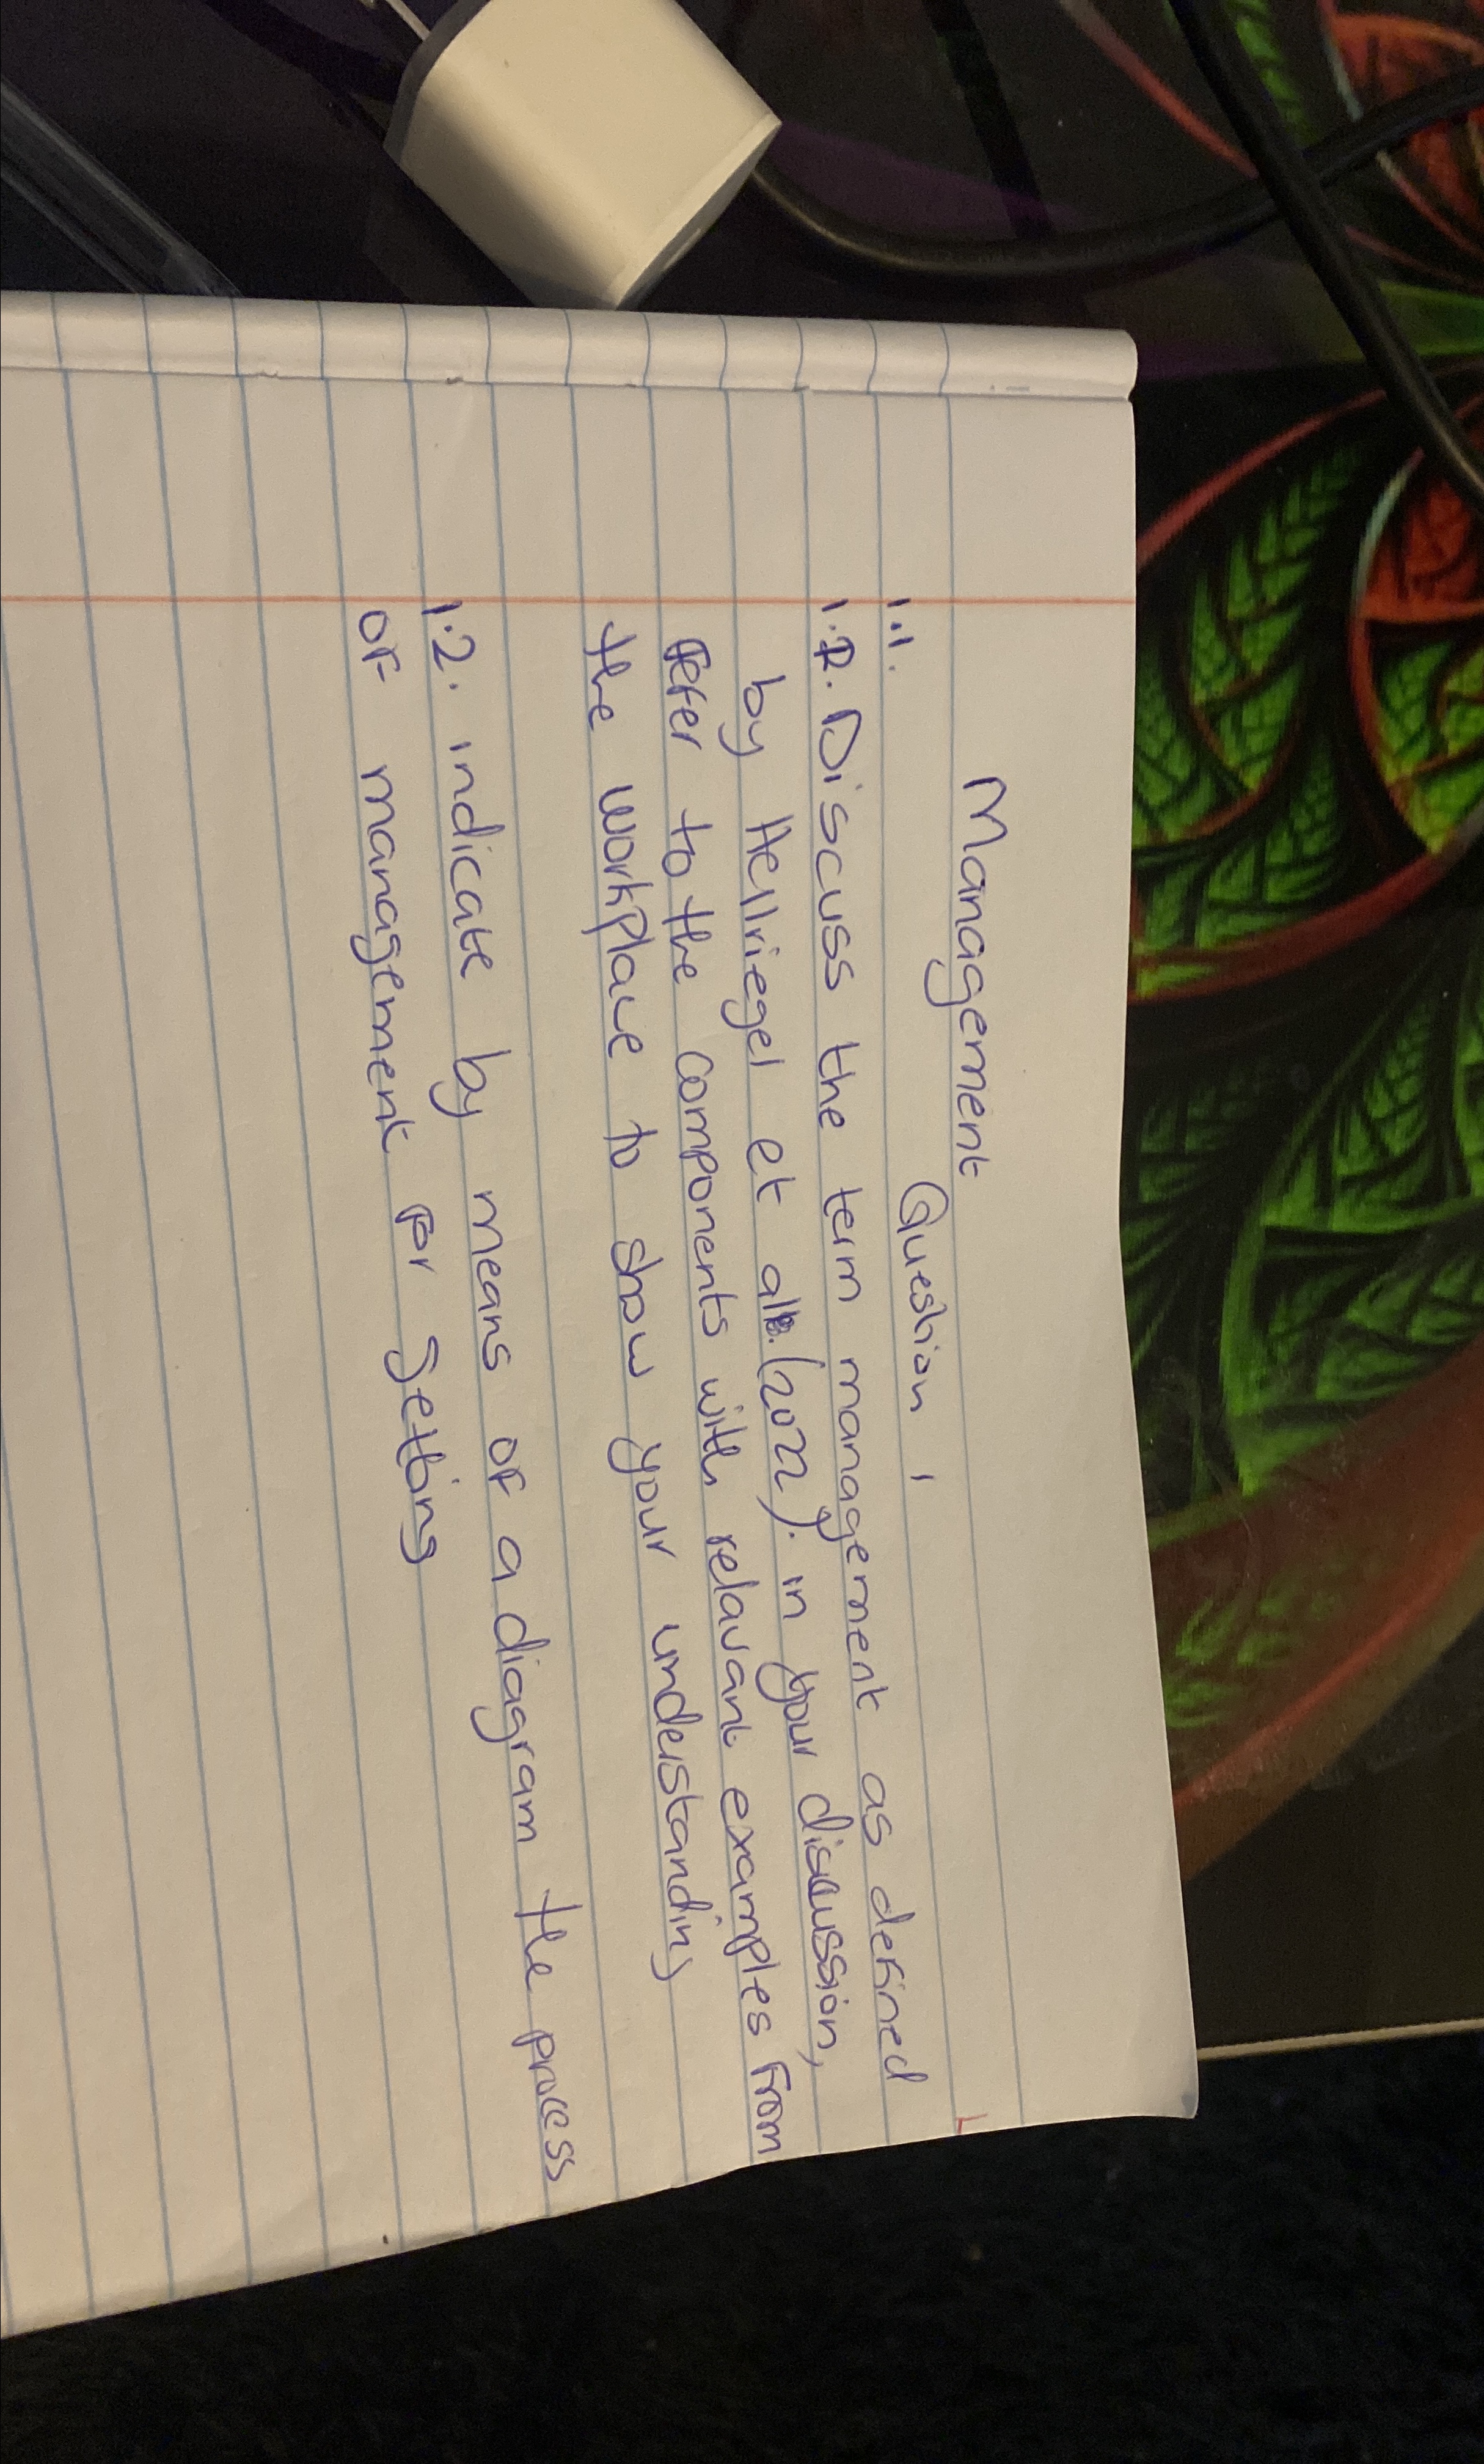 Management
Question 1
1.1.
1.2. Discuss the term management as defined
by Hellriegel et al. (2022). in your discussion,
Refer to the components with relavant examples From
the workplace to show your understanding
1.2. indicate by means of a diagram the process
of management for Settings